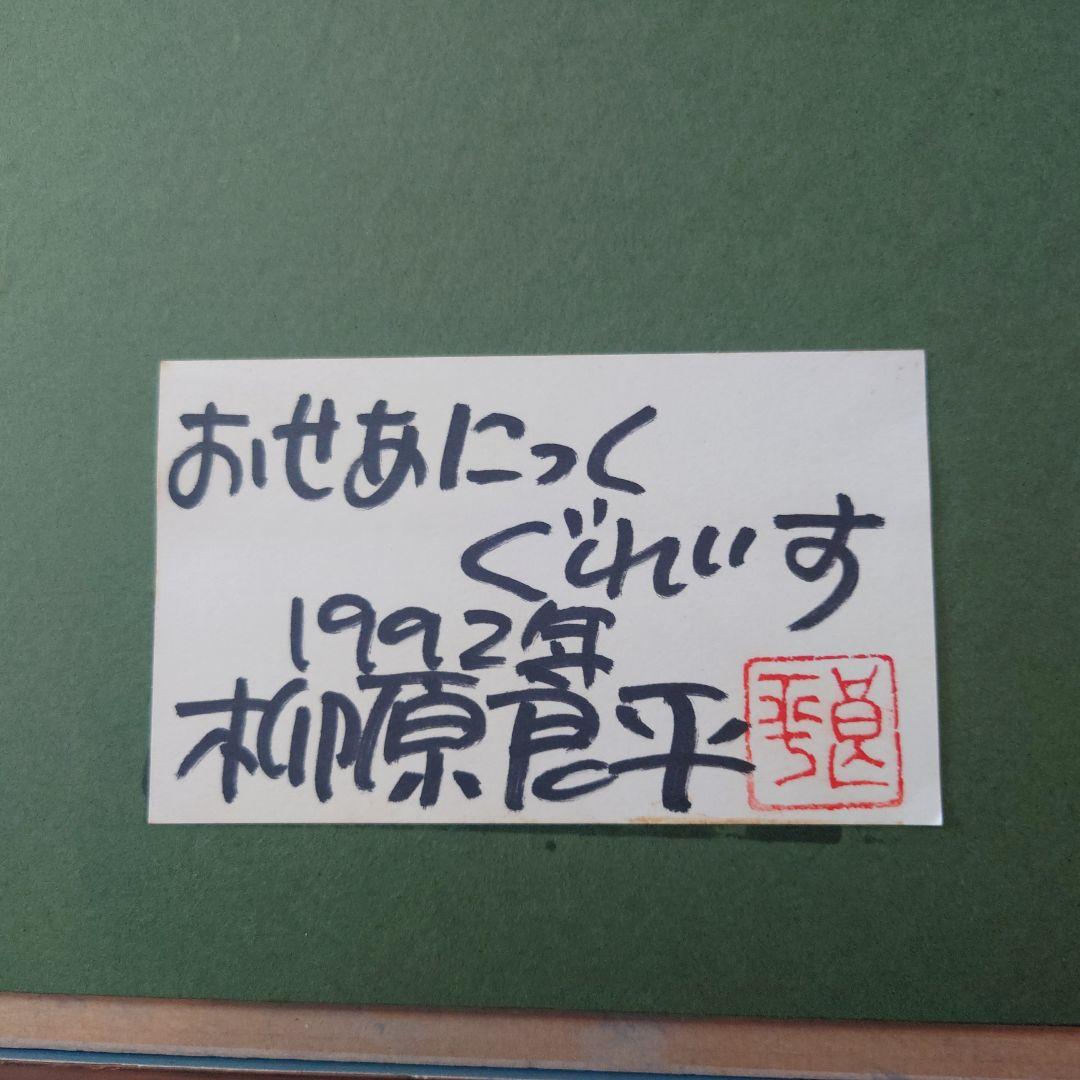 おせあにっく
ぐれいす
1992年
柳原良平
良平